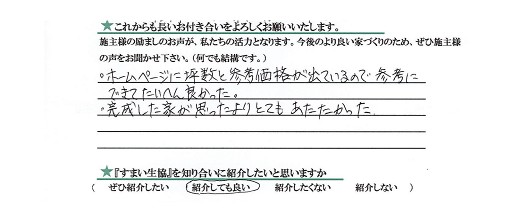 ★これからも長いお付き合いをよろしくお願いいたします。
施主様の励ましのお声が、私たちの活力となります。今後のより良い家づくりのため、ぜひ施主様
の声をお聞かせ下さい。(何でも結構です。)
・ホームページに坪数と参考価格が出ているので参考に
できてたいへん良かった。
・完成した家が思ったよりとてもあたたかった
★『すまい生協』を知り合いに紹介したいと思いますか
( ぜひ紹介したい 紹介しても良い 紹介したくない 紹介しない )